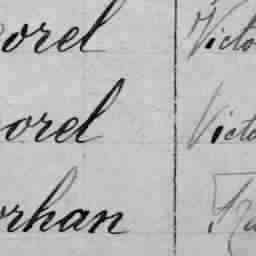 orel Victo
orel Victo
orhan